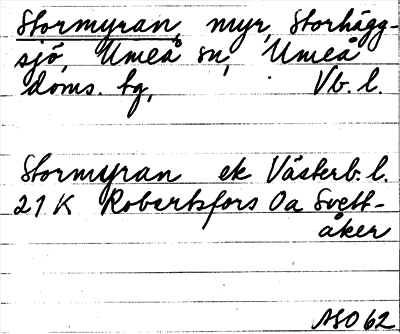 Stormyran, myr, Storhägg-
sjö, Umeå sn, Umeå
doms. tg, Vb. l.
Stormyran ek Västerb. l.
21 K Robertsfors Oa Svett-
åker
ASO 62